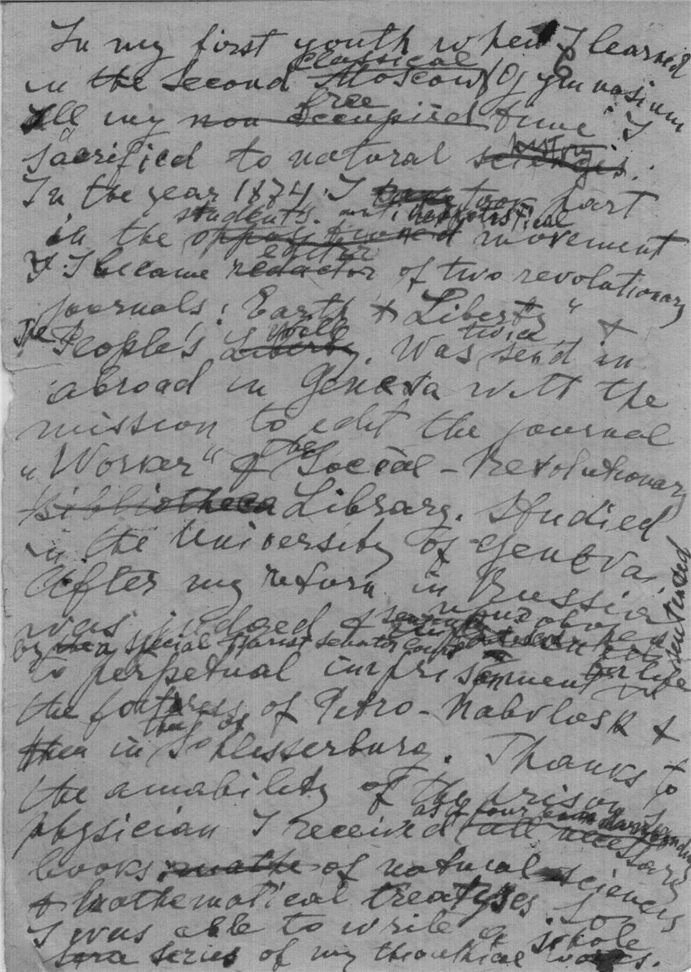 In my first youth when I learned
classical
in the Second Moscow Gymnasium
free
all my non occupied time I
history
sacrified to natural sciences.
In the year 1874 I took part
students. anti
in the movement
editor
& I became redactor of two revolutionary
journals: "Earth & Liberty" &
Will twice
"People's Liberty. Was send in
abroad in Geneva with the
mission to edit the journal
"Worker" of the Social-Revolutionary
Bibliotheca Library. Studied
in the University of Geneva.
After my return in Russia
was judged &
by special senator sentenced
to perpetual imprisonment for life in
the fortress of Petro-Pavlosk &
then in Schlisserburg. Thanks to
the amability of the prison
physician I received all necessary
books: of natural sciences
& mathematical treatyses so
I was able to write a whole
series of my works.